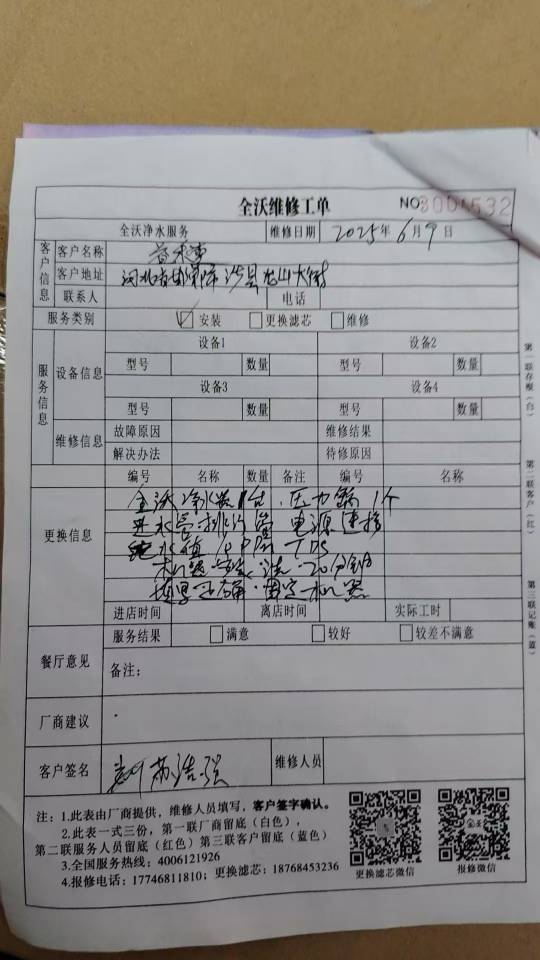 全沃维修工单 NO
全沃净水服务 维修日期 2025年6月9日
客户信息
客户名称
客户地址 河北省邯郸市涉县龙山大街
联系人 电话
服务类别 安装 更换滤芯 维修
服务信息
设备信息
设备1 设备2
型号 数量 型号 数量
设备3 设备4
型号 数量 型号 数量
维修信息
故障原因 维修结果
解决办法 待修原因
更换信息
编号 名称 数量 备注 编号 名称
全沃净水器1台.压力锅1个
进水管排污管 电源连接
纯水值 PPM TDS
机器安装.冲洗20分钟
正确.固定机器
进店时间 离店时间 实际工时
服务结果 满意 较好 较差不满意
餐厅意见
备注:
厂商建议
客户签名 维修人员
注: 1.此表由厂商提供, 维修人员填写, 客户签字确认。
2.此表一式三份, 第一联厂商留底(白色),
第二联服务人员留底(红色)第三联客户留底(蓝色)
3.全国服务热线: 4006121926
4.报修电话: 17746811810; 更换滤芯: 18768453236
更换滤芯微信
报修微信
第一联存根(白)
第二联客户(红)
第三联记账(蓝)